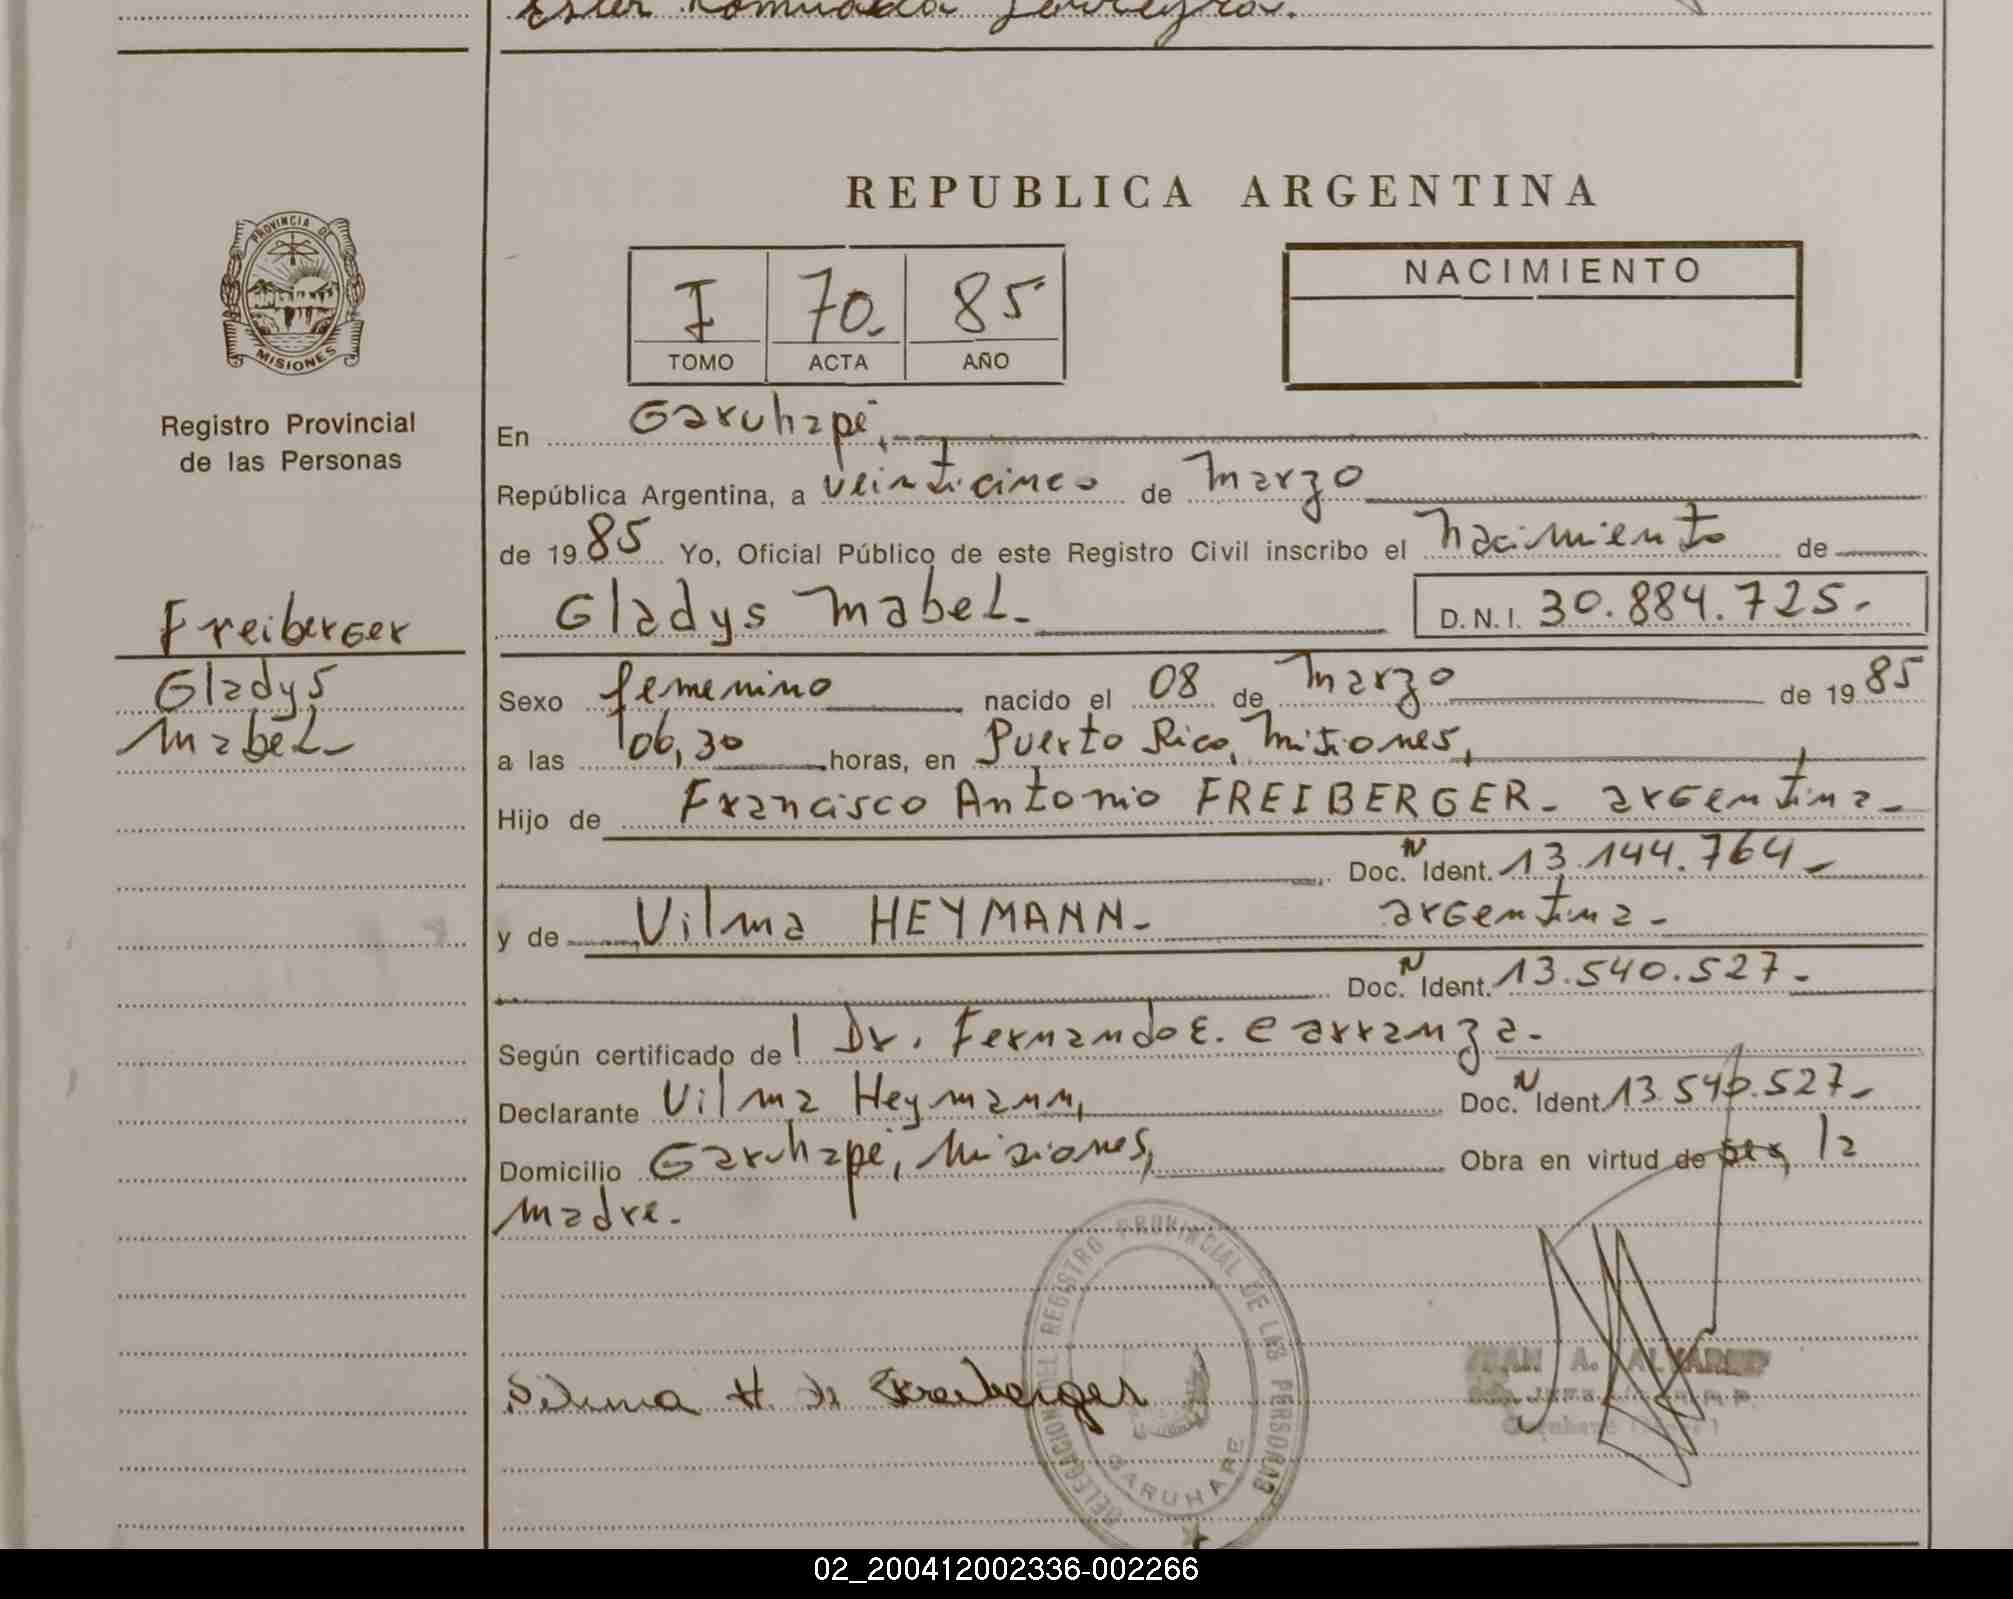 Ester Romualda Ferreyra.
REPUBLICA ARGENTINA
PROVINCIA DE
MISIONES
Registro Provincial
de las Personas
I 70. 85
TOMO ACTA AÑO
NACIMIENTO
En Garuhapé,
República Argentina, a veinticinco de Marzo
de 1985 Yo, Oficial Público de este Registro Civil inscribo el Nacimiento de
Gladys Mabel. D.N.I. 30.884.725.-
Freiberger
Gladys
Mabel-
Sexo femenino nacido el 08 de Marzo de 1985
a las 06,30 horas, en Puerto Rico, Misiones,
Hijo de Francisco Antonio FREIBERGER- argentina-
Doc. N Ident. 13.144.764-
y de Vilma HEYMANN- argentina-
Doc. N Ident. 13.540.527-
Según certificado de Dr. Fernando E. Carranza-
Declarante Vilma Heymann, Doc. N Ident. 13.540.527-
Domicilio Garuhapé, Misiones, Obra en virtud de ser la
madre.-
DELEGACION DEL REGISTRO PROVINCIAL DE LAS PERSONAS
GARUHAPE
Vilma H. de Freiberger
JUAN A. ALVAREZ
02_200412002336-002266